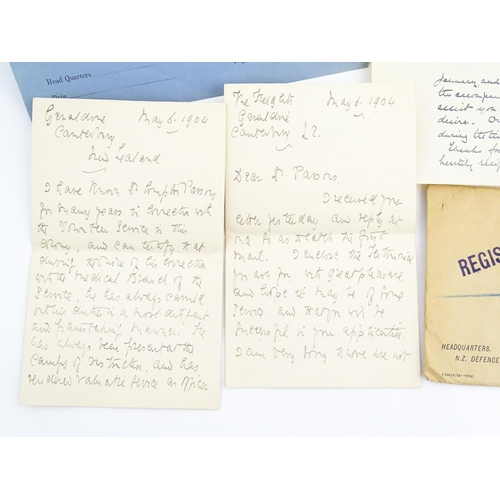 Head Quarters
Date
Geraldine May 6. 1904
Canterbury
New Zealand
I have known Dr
for many years in connection with
the Volunteer Service in this
Colony, and can testify that
during the whole of his connection
with the Medical Branch of the
Service, he has always carried
out his duties in a most diligent
and manner. He
has always been present at the
Camps of Instruction, and has
rendered valuable service as Officer
The Heights May 6. 1904
Geraldine
Canterbury N.Z.
Dear Dr
I received your
letter yesterday and reply at
once to catch the first
mail. I enclose the testimonial
you ask for with great pleasure
and hope it may be of some
service, and that you will be
successful in your application.
I am very sorry I have not
January and
the accompan
assist you
desire. Or
during the
Thanks for
heartily recip
REGIS
HEADQUARTERS,
N.Z. DEFENCE